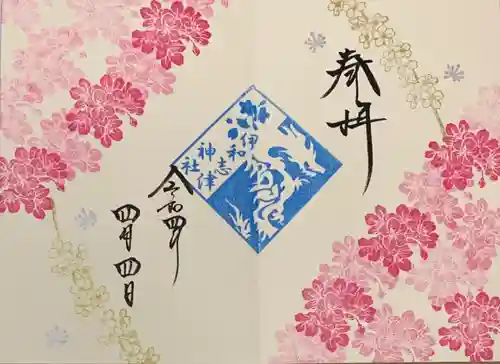 奉拝
伊和志津
神社
令和四年
四月四日